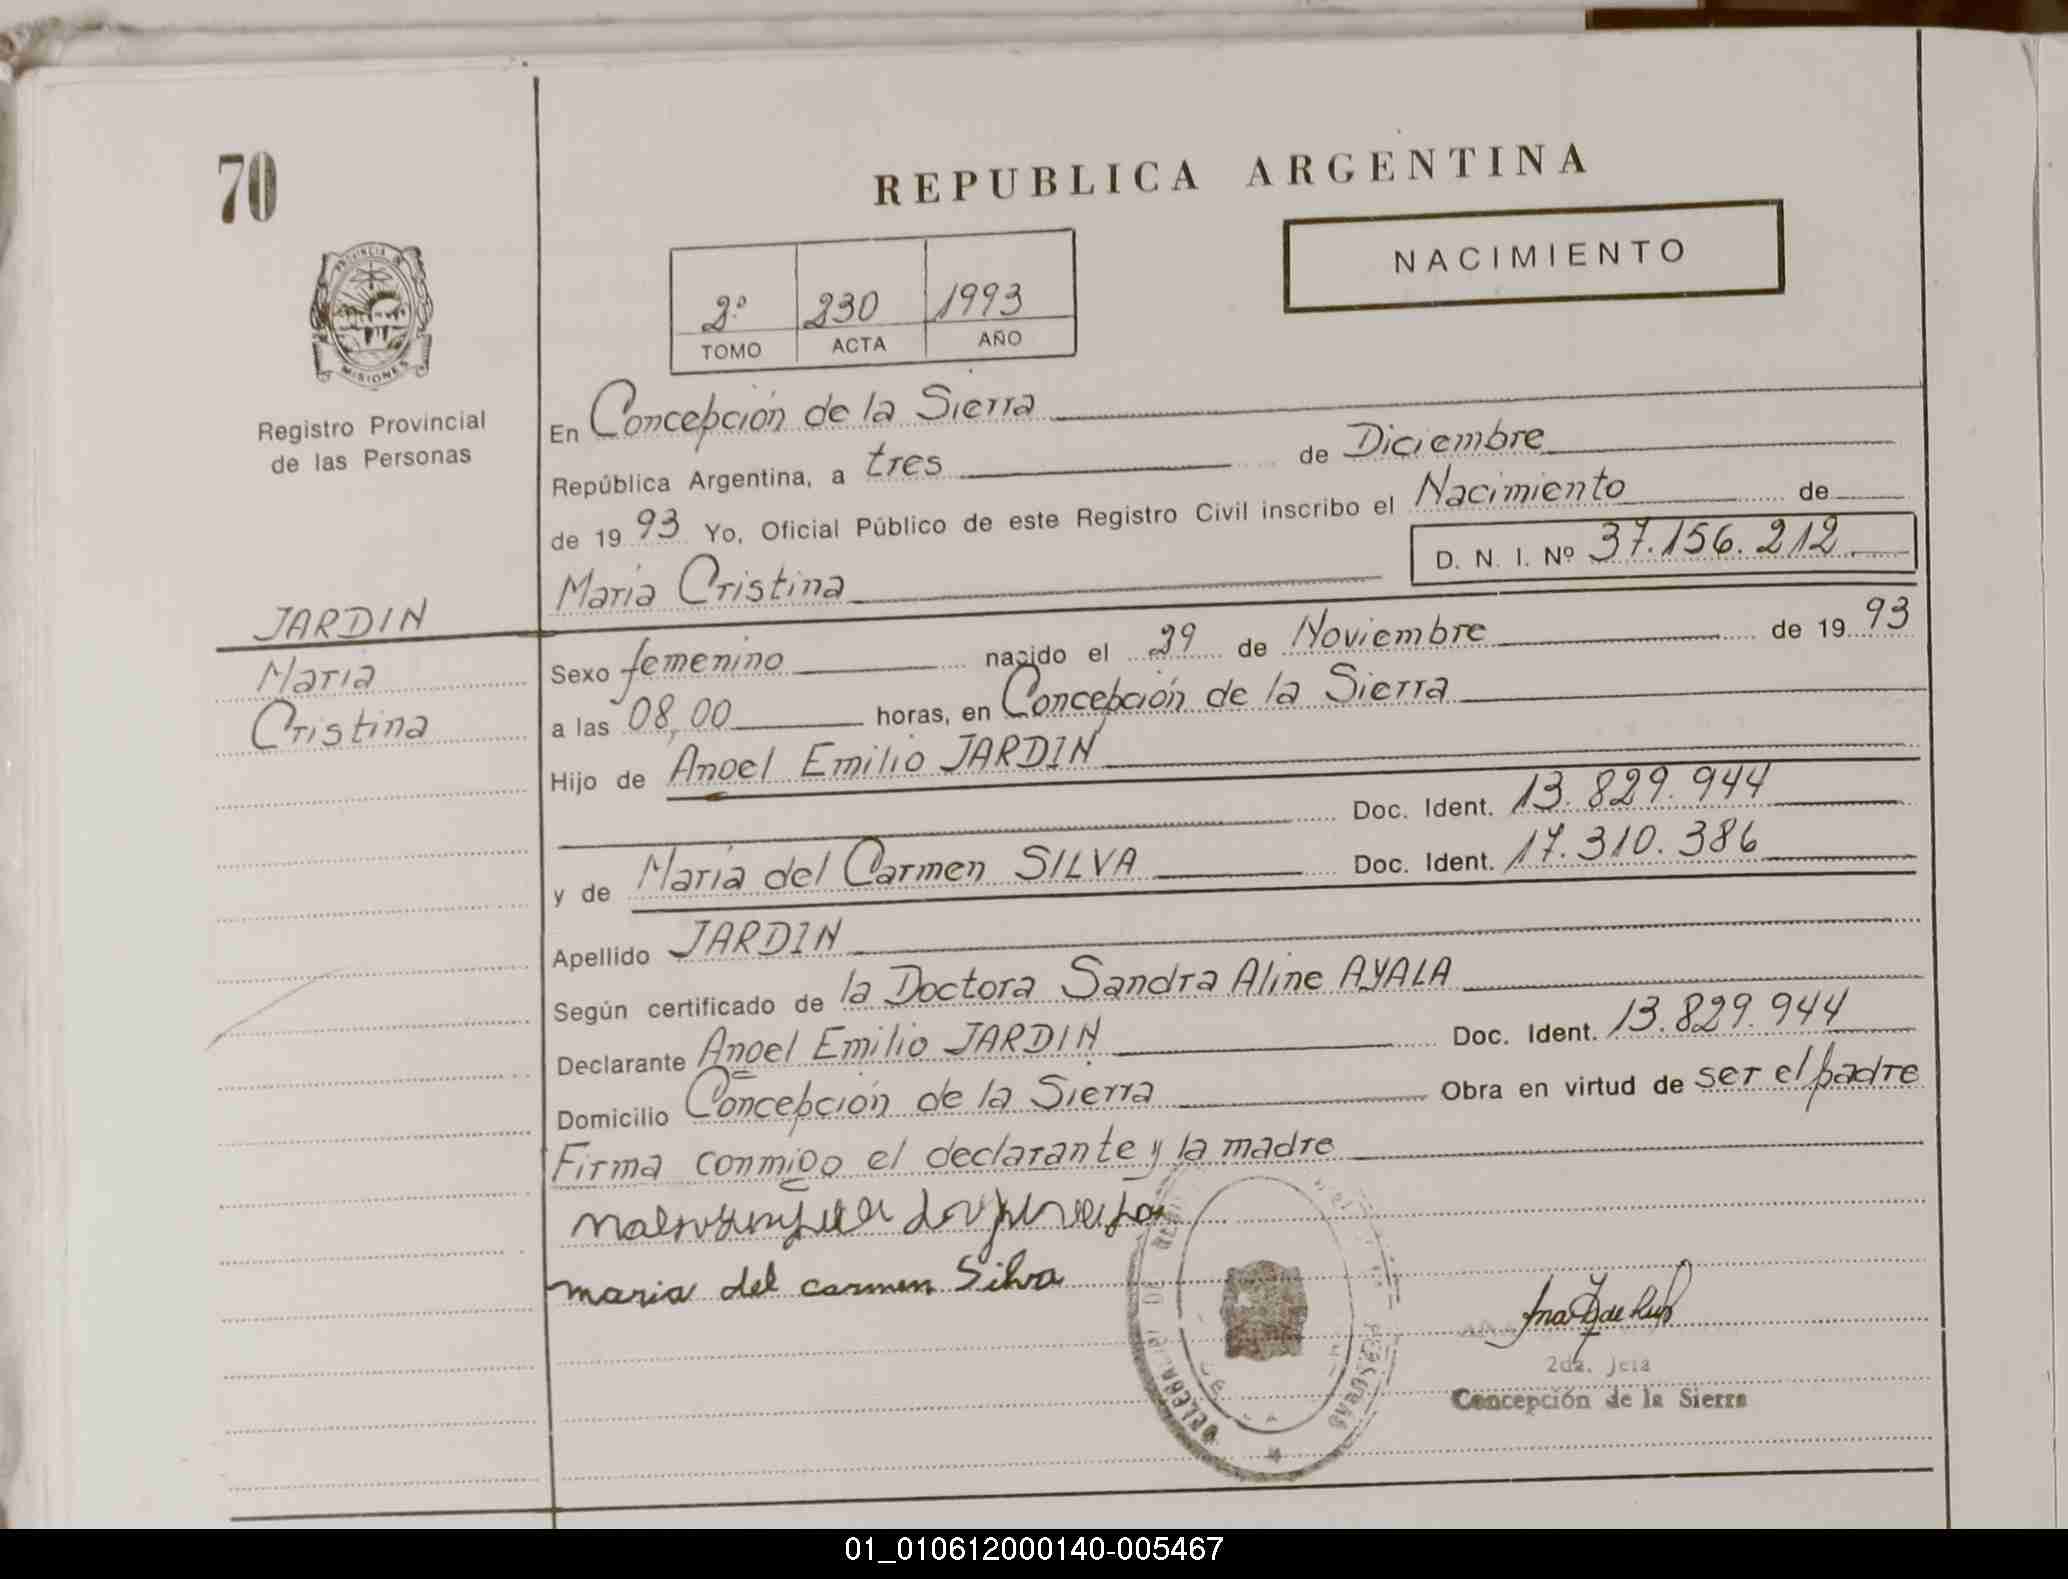 70
REPUBLICA ARGENTINA
NACIMIENTO
2º 230 1993
TOMO ACTA AÑO
PROVINCIA DE
MISIONES
Registro Provincial
de las Personas
En Concepción de la Sierra
República Argentina, a tres de Diciembre
de 19 93 Yo, Oficial Público de este Registro Civil inscribo el Nacimiento de
D. N. I. Nº 37.156.212
María Cristina
JARDIN
María
Cristina
Sexo femenino nacido el 29 de Noviembre de 19 93
a las 08,00 horas, en Concepción de la Sierra
Hijo de Angel Emilio JARDIN
Doc. Ident. 13.829.944
y de María del Carmen SILVA Doc. Ident. 17.310.386
Apellido JARDIN
Según certificado de la Doctora Sandra Aline AYALA
Declarante Angel Emilio JARDIN Doc. Ident. 13.829.944
Domicilio Concepción de la Sierra Obra en virtud de ser el padre
Firma conmigo el declarante y la madre
maria del carmen Silva
2da. Jefa
Concepción de la Sierra
01_010612000140-005467